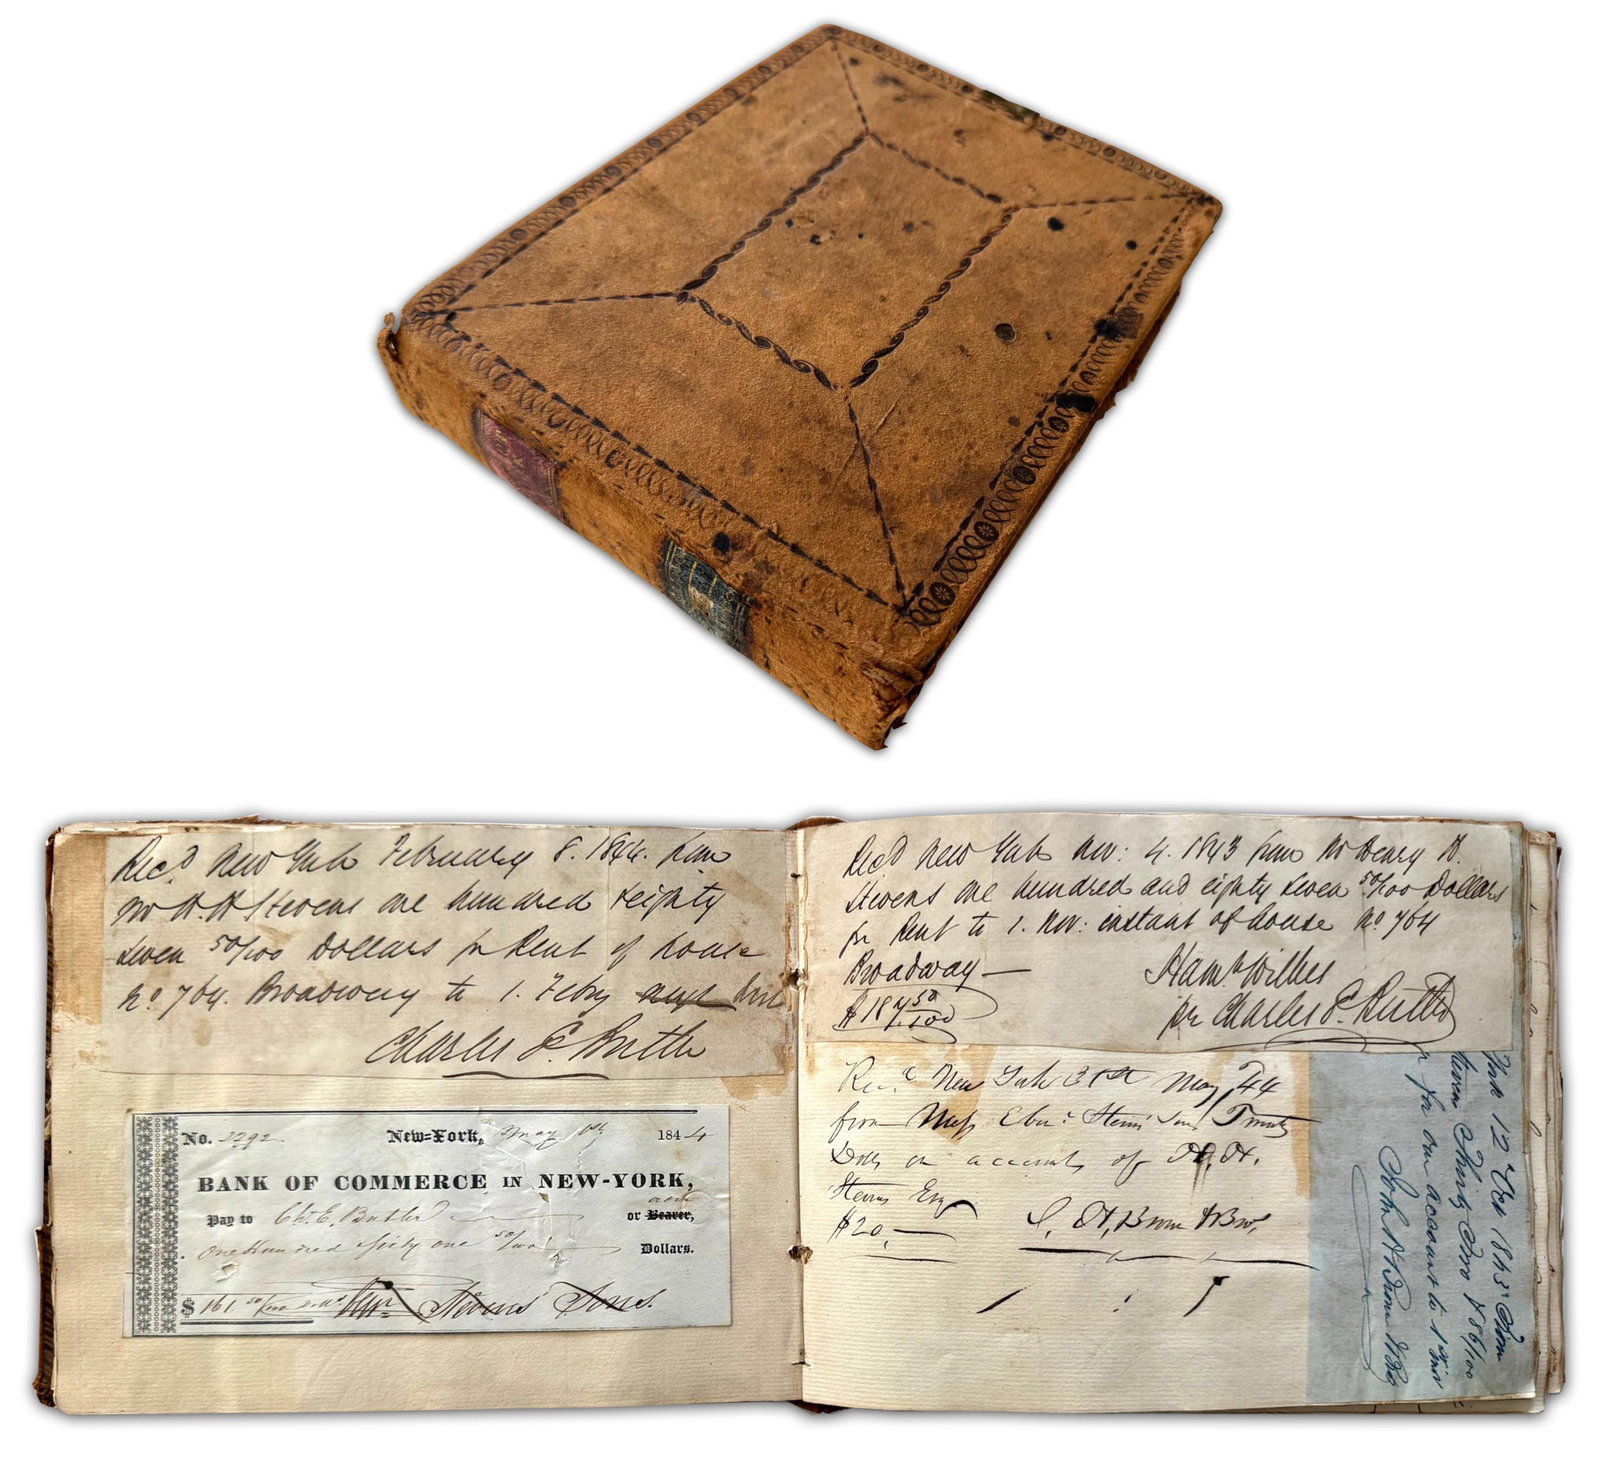 Rec.d New York February 8. 1844. from
Mr H. H Stevens one hundred & eighty
seven 50/100 Dollars for Rent of house
No. 764. Broadway to 1. Feby
Charles E. Butler
No. 2292 New=York, May 1844
BANK OF COMMERCE IN NEW-YORK,
Pay to Ch. E. Butler or Bearer,
One Hundred sixty one 50/100 Dollars.
$ 161 50/100 Stevens Sons.
Rec.d New York Nov: 4. 1843 from Mr Henry H.
Stevens one hundred and eighty seven 50/100 Dollars
for Rent to 1. Nov: instant of house No 764
Broadway — Ham.n Wilkes
$ 187 50/100 per Charles E. Butler
Rec.d New York 31st May 44
from Mess Eben: Stevens Sons Twenty
Dolls on account of H. H.
Stevens Esq
$20.— J. H. Brown & Bro.
York 12 1843 From
Stevens Thirty Two 86/100
for our account to 1st
John H Brown & Bro